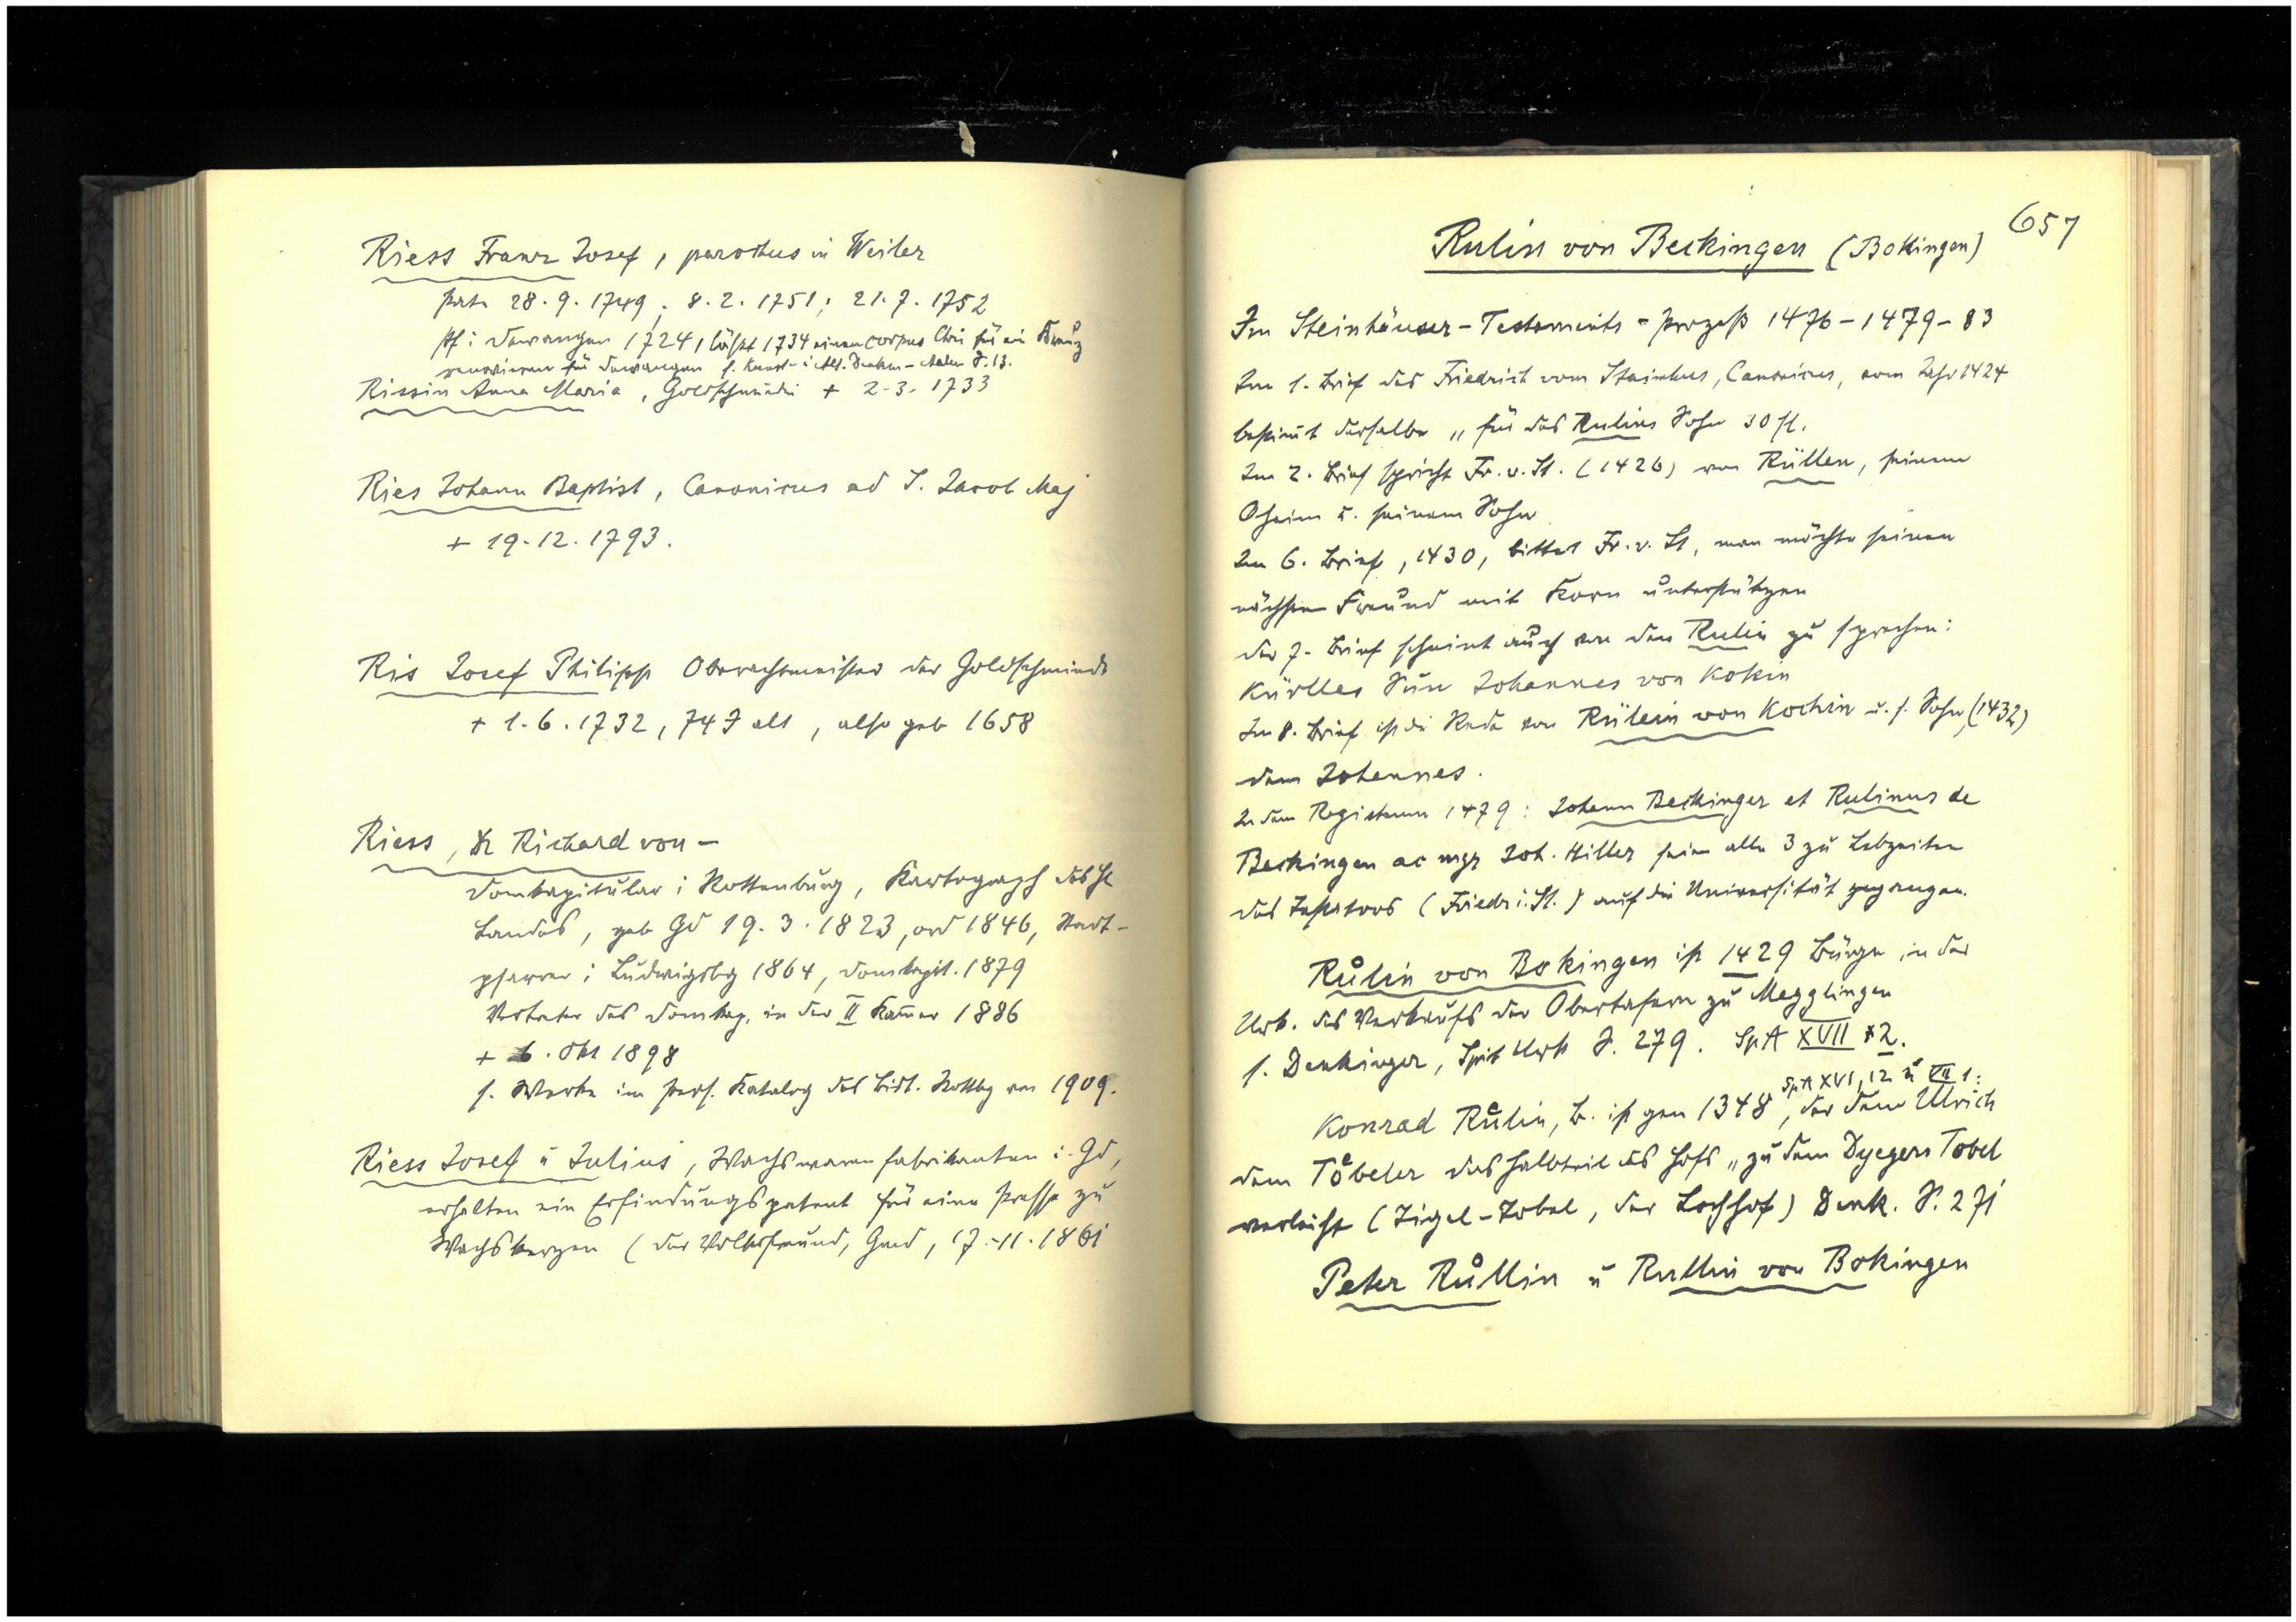 Riess Franz Josef, parochus in Weiler
Pate 28.9.1749; 8.2.1751; 21.7.1752
Pf i Dewangen 1724, läßt 1734 einen corpus Chri für ein Kreuz
renovieren für Dewangen s. Kunst- i Alt. Denkm-Aalen S. 13.
Rissin Anna Maria, Goldschmidin + 2-3-1733
Ries Johann Baptist, Canonicus ad S. Jacob Maj
+ 19.12.1793.
Ris Josef Philipp Oberachtmeister der Goldschmiede
+ 1.6.1732, 74 J alt, also geb 1658
Riess, Dr Richard von –
Domkapitular i Rottenburg, Kartograph des hl
Landes, geb Gd 19.3.1823, ord 1846, Stadt-
pfarrer i Ludwigsbg 1864, Domkapit. 1879
Vertreter des Domkap. in der II Kam̄er 1886
+ 6. Okt 1898
s. Werke im Pers. Katalog des Bist. Rottbg von 1909.
Riess Josef ü Julius, Wachswarenfabrikanten i. Gd,
erhalten ein Erfindungspatent für eine Presse zu
Wachskerzen (Der Volksfreund, Gmd, 17.-11.1861
657
Rulin von Beckingen (Bokingen)
Im Steinhäuser-Testaments-Prozeß 1476-1479-83
Im 1. Brief des Friedrich vom Stainhus, Canonicus, vom Jahr 1424
bestim̄t derselbe „für des Rulins Sohn 30 fl.
Im 2. Brief spricht Fr. v. St. (1426) von Rüllen, seinem
Oheim u. seinem Sohn
Im 6. Brief, 1430, bittet Fr. v. St, man möchte seinen
nächsten Freund mit Korn unterstützen
Der 7. Brief scheint auch von dem Rulin zu sprechen:
Kürlles Sun Johannes von Kokin
Im 8. Brief ist die Rede von Rülein von Kochin u. s. Sohn, (1432)
dem Johannes.
In dem Registrum 1479: Johann Beckinger et Rulinus de
Beckingen ac mgr Joh. Hiller seien alle 3 zu Lebzeiten
des Testators (Friedr. i. St.) auf die Universität gegangen.
Růlin von Bokingen ist 1429 Bürge in der
Urk. des Verkaufs der Obertafern zu Mögglingen
s. Denkinger, Spit Urk S. 279. SpA XVII *2.
SpA XVI, 12 ü VII 1:
Konrad Růlin, B. ist gen 1348, der dem Ulrich
dem Töbeler das Halbteil des Hofs „zu dem Dyegers Tobel
verleiht (Zigel-Tobel, der Lochhof) Denk. S. 271
Peter Růllin ü Rullin von Bokingen